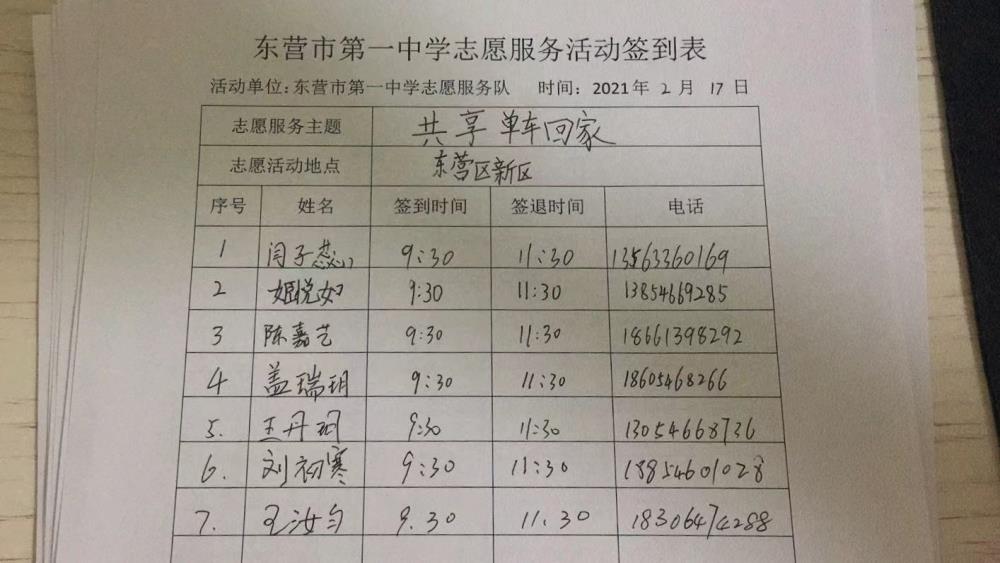 东营市第一中学志愿服务活动签到表
活动单位:东营市第一中学志愿服务队 时间: 2021年 2 月 17 日
志愿服务主题 共享单车回家
志愿活动地点 东营区新区
序号 姓名 签到时间 签退时间 电话
1 闫子蕊 9:30 11:30 13563360169
2 姬悦如 9:30 11:30 13854669285
3 陈嘉艺 9:30 11:30 18661398292
4 盖瑞玥 9:30 11:30 18605468266
5. 王丹珂 9:30 11:30 13054668736
6. 刘初寒 9:30 11:30 18854601028
7. 王汝匀 9.30 11.30 18306474288